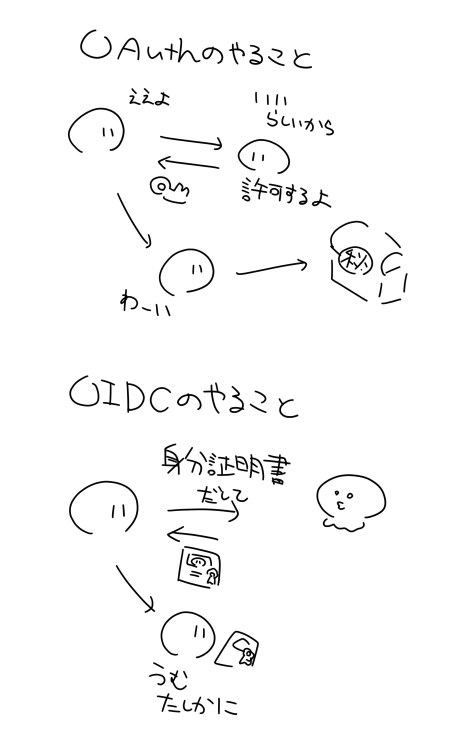 OAuthのやること
ええよ
いい
らしいから
許可するよ
わーい
秘
OIDCのやること
身分証明書
だして
うむ
たしかに